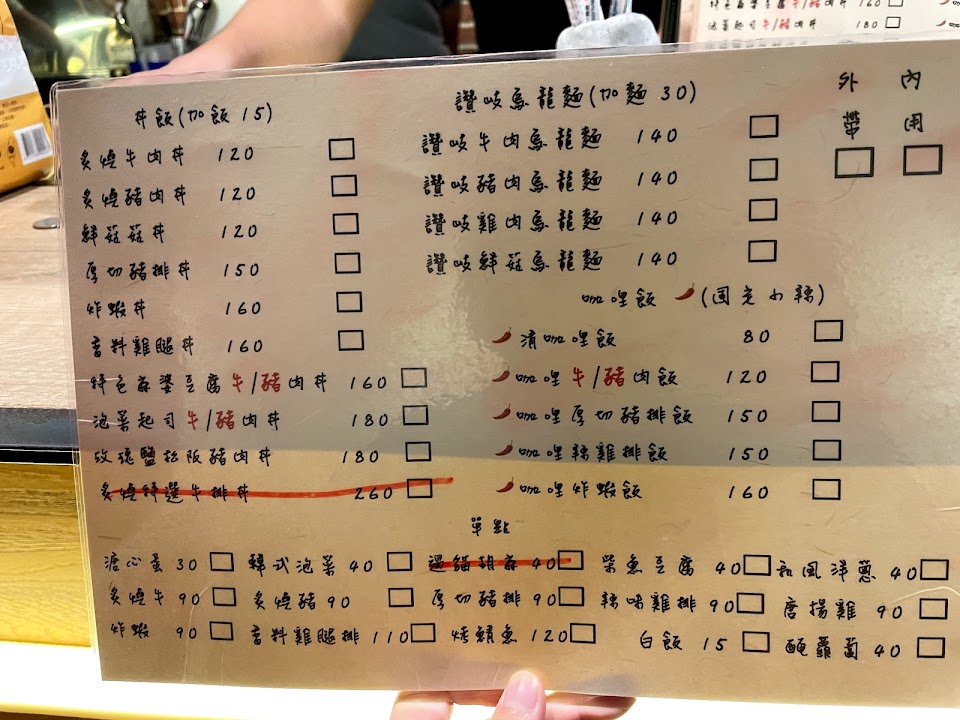 特色麻婆豆腐牛/豬肉丼 160
泡菜起司牛/豬肉丼 180
外 內
帶 用
丼飯(加飯 15)
炙燒牛肉丼 120
炙燒豬肉丼 120
鮮菇菇丼 120
厚切豬排丼 150
炸蝦丼 160
香料雞腿丼 160
特色麻婆豆腐牛/豬肉丼 160
泡菜起司牛/豬肉丼 180
玫瑰鹽松阪豬肉丼 180
炙燒特選牛排丼 260
讚岐烏龍麵(加麵 30)
讚岐牛肉烏龍麵 140
讚岐豬肉烏龍麵 140
讚岐雞肉烏龍麵 140
讚岐鮮菇烏龍麵 140
咖哩飯 (固定小辣)
清咖哩飯 80
咖哩牛/豬肉飯 120
咖哩厚切豬排飯 150
咖哩辣雞排飯 150
咖哩炸蝦飯 160
單點
溏心蛋 30 韓式泡菜 40 過貓胡麻 40 柴魚豆腐 40 和風洋蔥 40
炙燒牛 90 炙燒豬 90 厚切豬排 90 辣味雞排 90 唐揚雞 90
炸蝦 90 香料雞腿排 110 烤鯖魚 120 白飯 15 醃蘿蔔 40